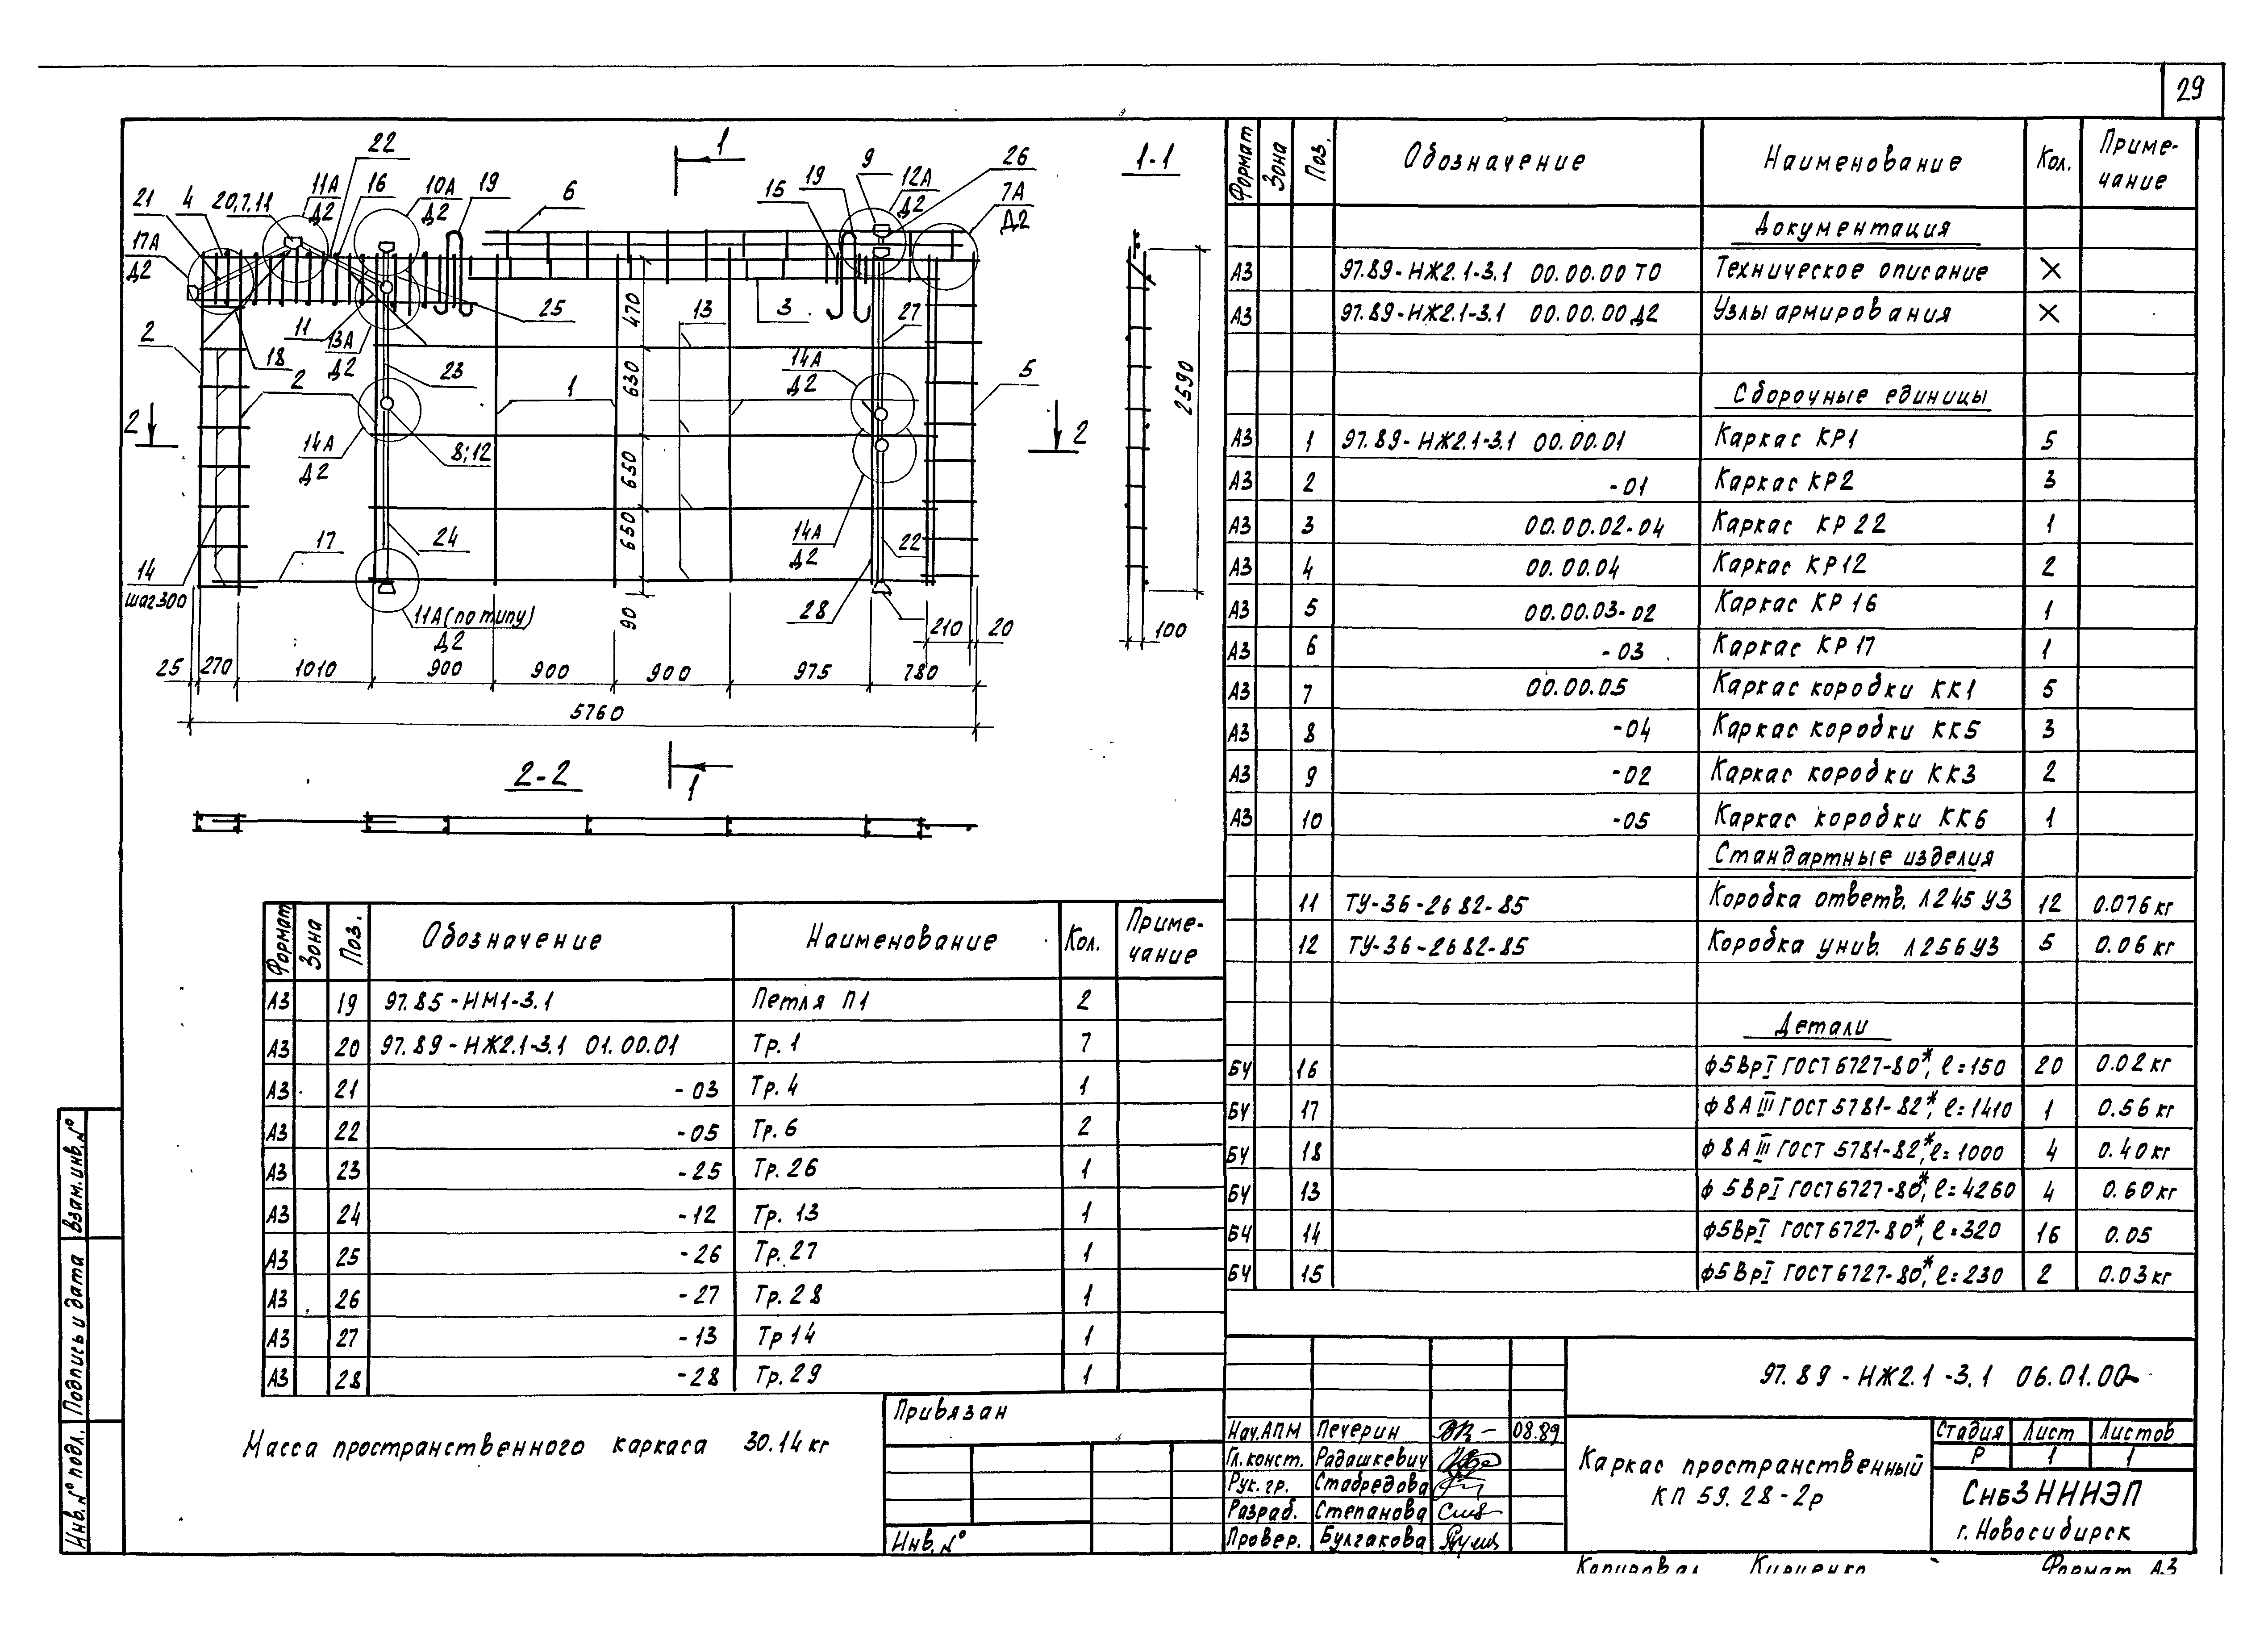 29
1
1-1
22
21
4
20,7,11
11А
Д2
16
10А
Д2
19
6
15
19
9
12А
Д2
26
7А
Д2
17А
Д2
2
18
11
13А
Д2
25
13
3
27
470
2
23
1
630
14А
Д2
5
2590
2
2
14А
Д2
8;12
650
14А
Д2
22
17
24
650
14
шаг300
11А(по типу)
Д2
90
28
210
20
100
25
270
1010
900
900
900
975
780
5760
2-2
1
Формат Зона Поз. Обозначение Наименование Кол. Приме-
чание
Документация
А3 97.89-НЖ2.1-3.1 00.00.00 ТО Техническое описание X
А3 97.89-НЖ2.1-3.1 00.00.00 Д2 Узлы армирования X
Сборочные единицы
А3 1 97.89-НЖ2.1-3.1 00.00.01 Каркас КР1 5
А3 2 -01 Каркас КР2 3
А3 3 00.00.02-04 Каркас КР 22 1
А3 4 00.00.04 Каркас КР12 2
А3 5 00.00.03-02 Каркас КР 16 1
А3 6 -03 Каркас КР 17 1
А3 7 00.00.05 Каркас коробки КК1 5
А3 8 -04 Каркас коробки КК5 3
А3 9 -02 Каркас коробки КК3 2
А3 10 -05 Каркас коробки КК6 1
Стандартные изделия
11 ТУ-36-2682-85 Коробка ответв. Л245 У3 12 0.076 кг
12 ТУ-36-2682-85 Коробка унив. Л256У3 5 0.06 кг
Детали
БЧ 16 ф5ВрI ГОСТ 6727-80*, ℓ=150 20 0.02 кг
БЧ 17 ф8АIII ГОСТ 5781-82*, ℓ=1410 1 0.56 кг
БЧ 18 ф8АIII ГОСТ 5781-82*, ℓ=1000 4 0.40 кг
БЧ 13 ф5ВрI ГОСТ 6727-80*, ℓ=4260 4 0.60 кг
БЧ 14 ф5ВрI ГОСТ 6727-80*, ℓ=320 16 0.05
БЧ 15 ф5ВрI ГОСТ 6727-80*, ℓ=230 2 0.03 кг
Формат Зона Поз. Обозначение Наименование Кол. Приме-
чание
А3 19 97.85-НМ1-3.1 Петля П1 2
А3 20 97.89-НЖ2.1-3.1 01.00.01 Тр. 1 7
А3 21 -03 Тр. 4 1
А3 22 -05 Тр. 6 2
А3 23 -25 Тр. 26 1
А3 24 -12 Тр. 13 1
А3 25 -26 Тр. 27 1
А3 26 -27 Тр. 28 1
А3 27 -13 Тр 14 1
А3 28 -28 Тр. 29 1
Масса пространственного каркаса 30.14 кг
Привязан
Инв. №
97.89-НЖ2.1-3.1 06.01.00
Нач.АПМ Печерин 08.89
Гл.конст. Радашкевич
Рук. гр. Стабредова
Разраб. Степанова
Провер. Булгакова
Каркас пространственный
КП 59.28-2р
Стадия Лист Листов
Р 1 1
СибЗНИИЭП
г. Новосибирск
Копировал Кириенко Формат А3
Взам.инв.№
Подпись и дата
Инв.№подл.